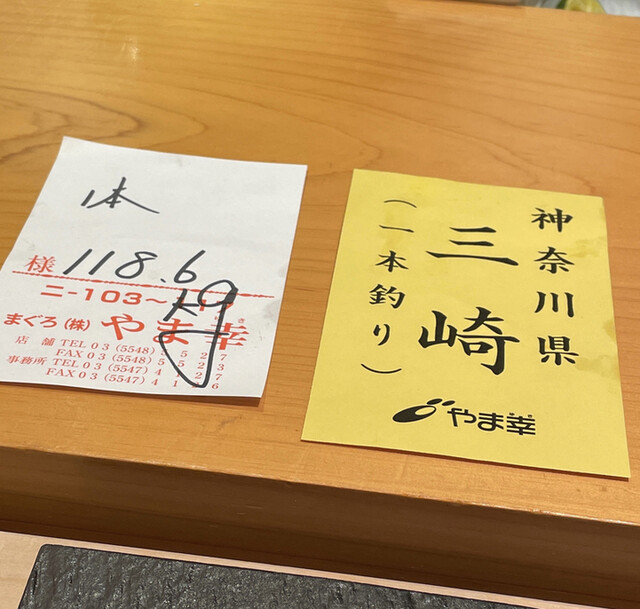 1本
様 118.6
ニ-103~
まぐろ(株)やま幸
店舗 TEL 03(5548)5
FAX 03(5548)5
事務所 TEL 03(5547)4
FAX 03(5547)4
神奈川県
三崎
(一本釣り)
やま幸